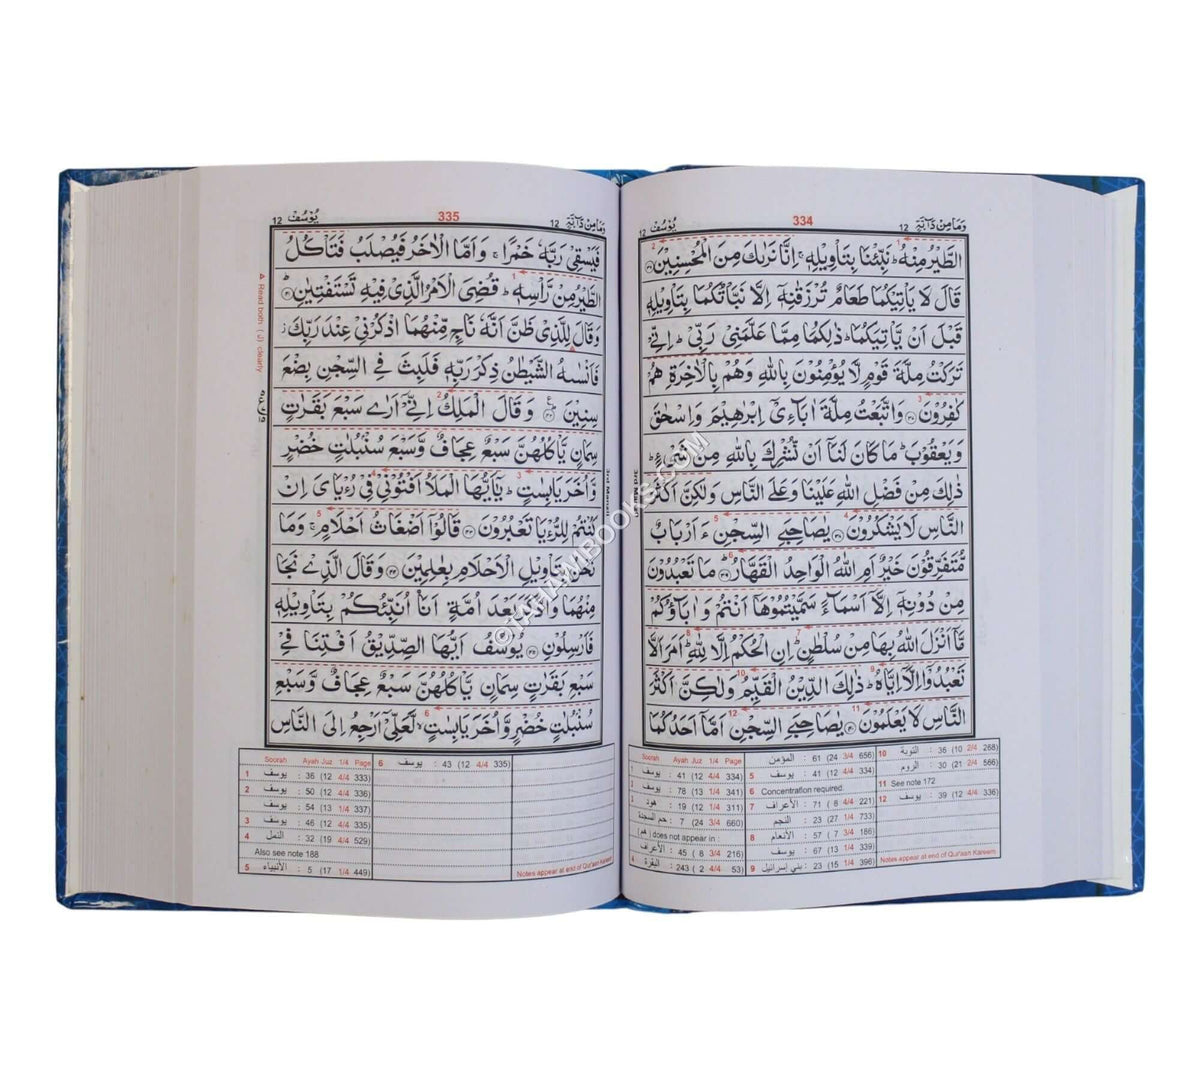 وَمَا مِنْ دَآبَّةٍ 12
334
يُوْسُفْ 12
الطَّيْرُ مِنْهُ ؕ نَبِّئْنَا بِتَاْوِيْلِهٖ ۚ اِنَّا نَرٰىكَ مِنَ الْمُحْسِنِيْنَ ﴿۳۶﴾
قَالَ لَا يَاْتِيْكُمَا طَعَامٌ تُرْزَقٰنِهٖۤ اِلَّا نَبَّاْتُكُمَا بِتَاْوِيْلِهٖ
قَبْلَ اَنْ يَّاْتِيَكُمَا ؕ ذٰلِكُمَا مِمَّا عَلَّمَنِيْ رَبِّيْ ؕ اِنِّيْ
تَرَكْتُ مِلَّةَ قَوْمٍ لَّا يُؤْمِنُوْنَ بِاللّٰهِ وَهُمْ بِالْاٰخِرَةِ هُمْ
كٰفِرُوْنَ ﴿۳۷﴾ وَاتَّبَعْتُ مِلَّةَ اٰبَآءِيْۤ اِبْرٰهِيْمَ وَاِسْحٰقَ
وَيَعْقُوْبَ ؕ مَا كَانَ لَنَاۤ اَنْ نُّشْرِكَ بِاللّٰهِ مِنْ شَيْءٍ ؕ
ذٰلِكَ مِنْ فَضْلِ اللّٰهِ عَلَيْنَا وَعَلَى النَّاسِ وَلٰكِنَّ اَكْثَرَ
النَّاسِ لَا يَشْكُرُوْنَ ﴿۳۸﴾ يٰصَاحِبَيِ السِّجْنِ ءَاَرْبَابٌ
مُّتَفَرِّقُوْنَ خَيْرٌ اَمِ اللّٰهُ الْوَاحِدُ الْقَهَّارُ ﴿۳۹﴾ مَا تَعْبُدُوْنَ
مِنْ دُوْنِهٖۤ اِلَّاۤ اَسْمَآءً سَمَّيْتُمُوْهَاۤ اَنْتُمْ وَاٰبَآؤُكُمْ
مَّاۤ اَنْزَلَ اللّٰهُ بِهَا مِنْ سُلْطٰنٍ ؕ اِنِ الْحُكْمُ اِلَّا لِلّٰهِ ؕ اَمَرَ اَلَّا
تَعْبُدُوْۤا اِلَّاۤ اِيَّاهُ ؕ ذٰلِكَ الدِّيْنُ الْقَيِّمُ وَلٰكِنَّ اَكْثَرَ
النَّاسِ لَا يَعْلَمُوْنَ ﴿۴۰﴾ يٰصَاحِبَيِ السِّجْنِ اَمَّاۤ اَحَدُكُمَا
Soorah Ayah Juz 1/4 Page
1 يوسف : 41 (12 4/4 334)
2 يوسف : 78 (13 1/4 341)
3 هود : 19 (12 1/4 311)
حم السجدة : 7 (24 3/4 660)
(هم) does not appear in :
الأعراف : 45 (8 3/4 216)
4 البقرة : 243 (2 4/4 53)
المؤمن : 61 (24 3/4 656)
5 يوسف : 41 (12 4/4 334)
6 Concentration required.
7 الأعراف : 71 (8 4/4 221)
النجم : 23 (27 1/4 733)
8 الأنعام : 57 (7 3/4 186)
يوسف : 67 (13 1/4 339)
9 بني إسرائيل : 23 (15 1/4 396)
10 التوبة : 36 (10 2/4 268)
الروم : 30 (21 2/4 566)
11 See note 172
12 يوسف : 39 (12 4/4 336)
Notes appear at end of Qur'aan Kareem
وَمَا مِنْ دَآبَّةٍ 12
335
يُوْسُفْ 12
فَيَسْقِيْ رَبَّهٗ خَمْرًا ۚ وَاَمَّا الْاٰخَرُ فَيُصْلَبُ فَتَاْكُلُ
الطَّيْرُ مِنْ رَّاْسِهٖ ؕ قُضِيَ الْاَمْرُ الَّذِيْ فِيْهِ تَسْتَفْتِيٰنِ ﴿۴۱﴾
وَقَالَ لِلَّذِيْ ظَنَّ اَنَّهٗ نَاجٍ مِّنْهُمَا اذْكُرْنِيْ عِنْدَ رَبِّكَ ز
فَاَنْسٰىهُ الشَّيْطٰنُ ذِكْرَ رَبِّهٖ فَلَبِثَ فِي السِّجْنِ بِضْعَ
سِنِيْنَ ﴿۴۲﴾ وَقَالَ الْمَلِكُ اِنِّيْۤ اَرٰى سَبْعَ بَقَرٰتٍ
سِمَانٍ يَّاْكُلُهُنَّ سَبْعٌ عِجَافٌ وَّسَبْعَ سُنْۢبُلٰتٍ خُضْرٍ
وَّاُخَرَ يٰبِسٰتٍ ؕ يٰۤاَيُّهَا الْمَلَاُ اَفْتُوْنِيْ فِيْ رُءْيَايَ اِنْ
كُنْتُمْ لِلرُّءْيَا تَعْبُرُوْنَ ﴿۴۳﴾ قَالُوْۤا اَضْغَاثُ اَحْلَامٍ ۚ وَمَا
نَحْنُ بِتَاْوِيْلِ الْاَحْلَامِ بِعٰلِمِيْنَ ﴿۴۴﴾ وَقَالَ الَّذِيْ نَجَا
مِنْهُمَا وَادَّكَرَ بَعْدَ اُمَّةٍ اَنَا اُنَبِّئُكُمْ بِتَاْوِيْلِهٖ
فَاَرْسِلُوْنِ ﴿۴۵﴾ يُوْسُفُ اَيُّهَا الصِّدِّيْقُ اَفْتِنَا فِيْ
سَبْعِ بَقَرٰتٍ سِمَانٍ يَّاْكُلُهُنَّ سَبْعٌ عِجَافٌ وَّسَبْعِ
سُنْۢبُلٰتٍ خُضْرٍ وَّاُخَرَ يٰبِسٰتٍ ۙ لَّعَلِّيْۤ اَرْجِعُ اِلَى النَّاسِ
Read both (ل) clearly
Soorah Ayah Juz 1/4 Page
1 يوسف : 36 (12 4/4 333)
2 يوسف : 50 (12 4/4 336)
يوسف : 54 (13 1/4 337)
3 يوسف : 46 (12 4/4 335)
4 النمل : 32 (19 4/4 529)
Also see note 188
5 الأنبياء : 5 (17 1/4 449)
6 يوسف : 43 (12 4/4 335)
Notes appear at end of Qur'aan Kareem
©TAHAWIBOOKS.COM